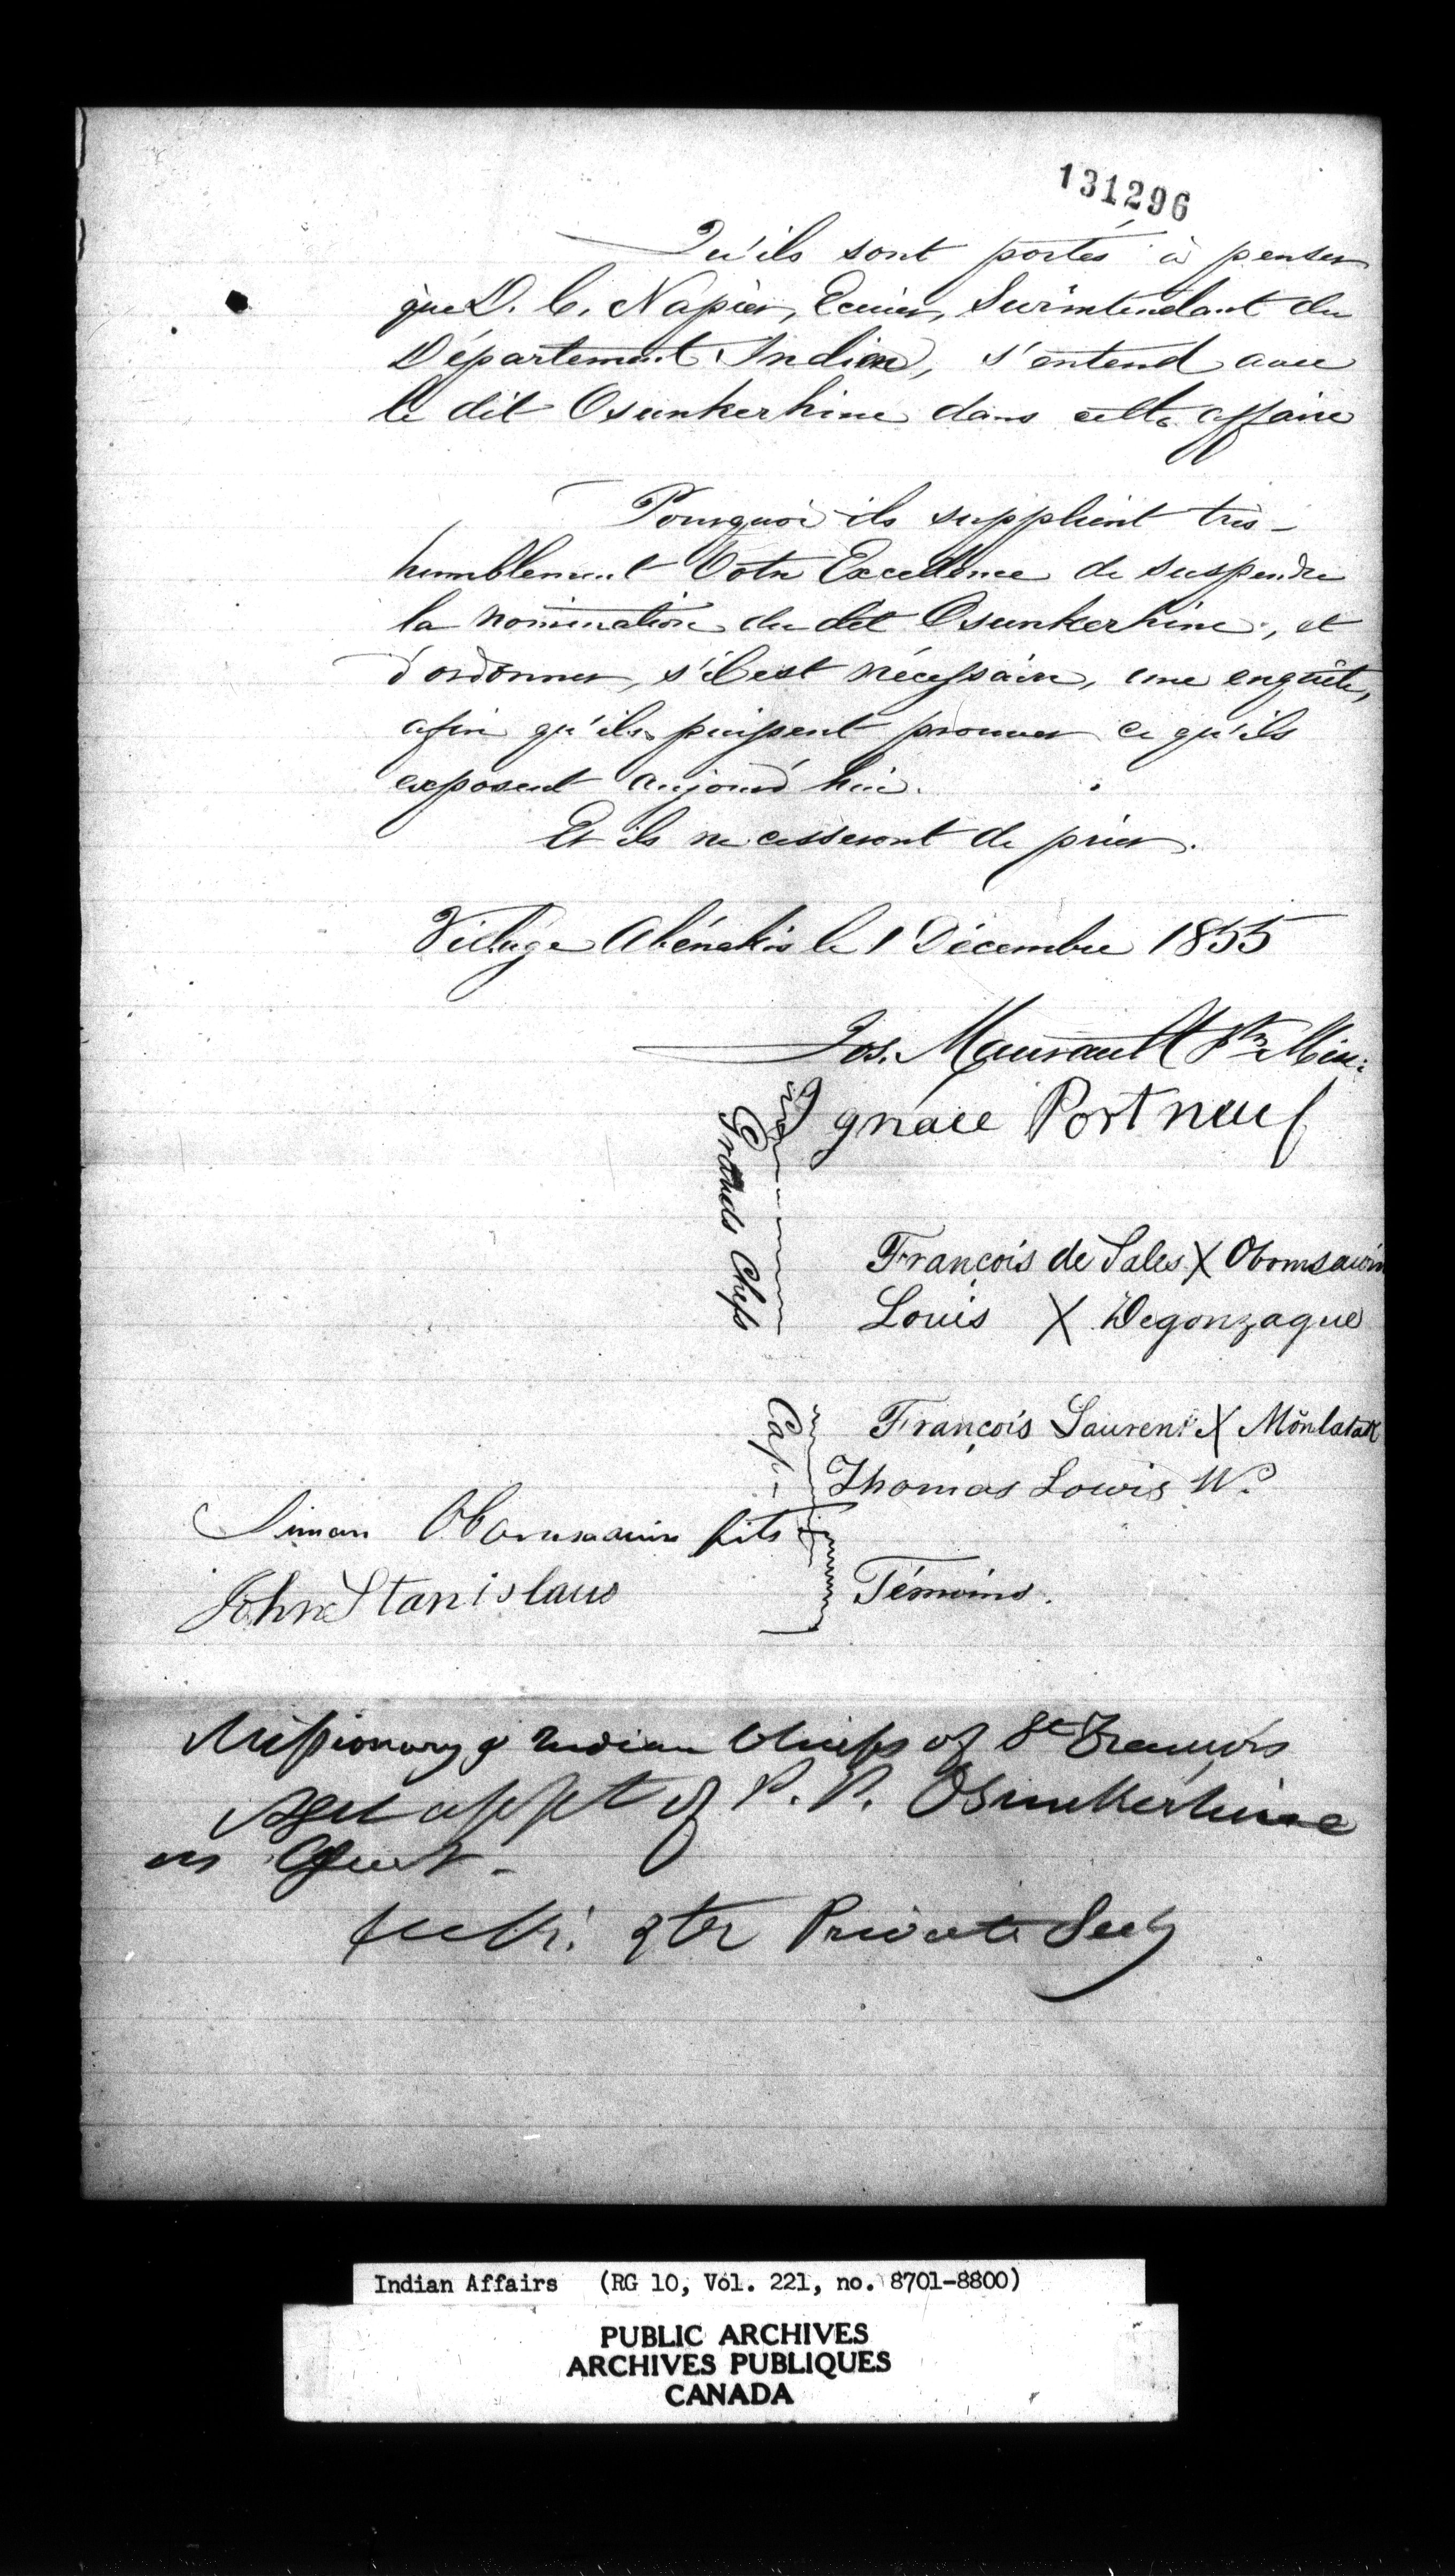 131296
Qu'ils sont portés à penser
que D. C. Napier, Ecuier, Surintendant du
Département Indien, s'entend avec
le dit Osunkerhine dans cette affaire
Pourquoi ils supplient très-
humblement Votre Excellence de suspendre
la nomination du dit Osunkerhine, et
d'ordonner, s'il est nécessaire, une enquête,
afin qu'ils puissent prouver ce qu'ils
exposent aujourd'hui.
Et ils ne cesseront de prier.
Village Abénakis le 1 Décembre 1855
Jos. Maurault Ptre Miss:
Ignace Portneuf
Grands Chefs
François de Sales X Obomsawin
Louis X Degonzague
Cap.
François Laurent X Mônlatak
Thomas Louis W.
Simon Obomsawin fils
John Stanislaus
Témoins.
Missionary & Indian Chiefs of St François
appt of P. P. Osunkerhine
as Agent -
Private Secy
Indian Affairs (RG 10, Vol. 221, no. 8701-8800)
PUBLIC ARCHIVES
ARCHIVES PUBLIQUES
CANADA